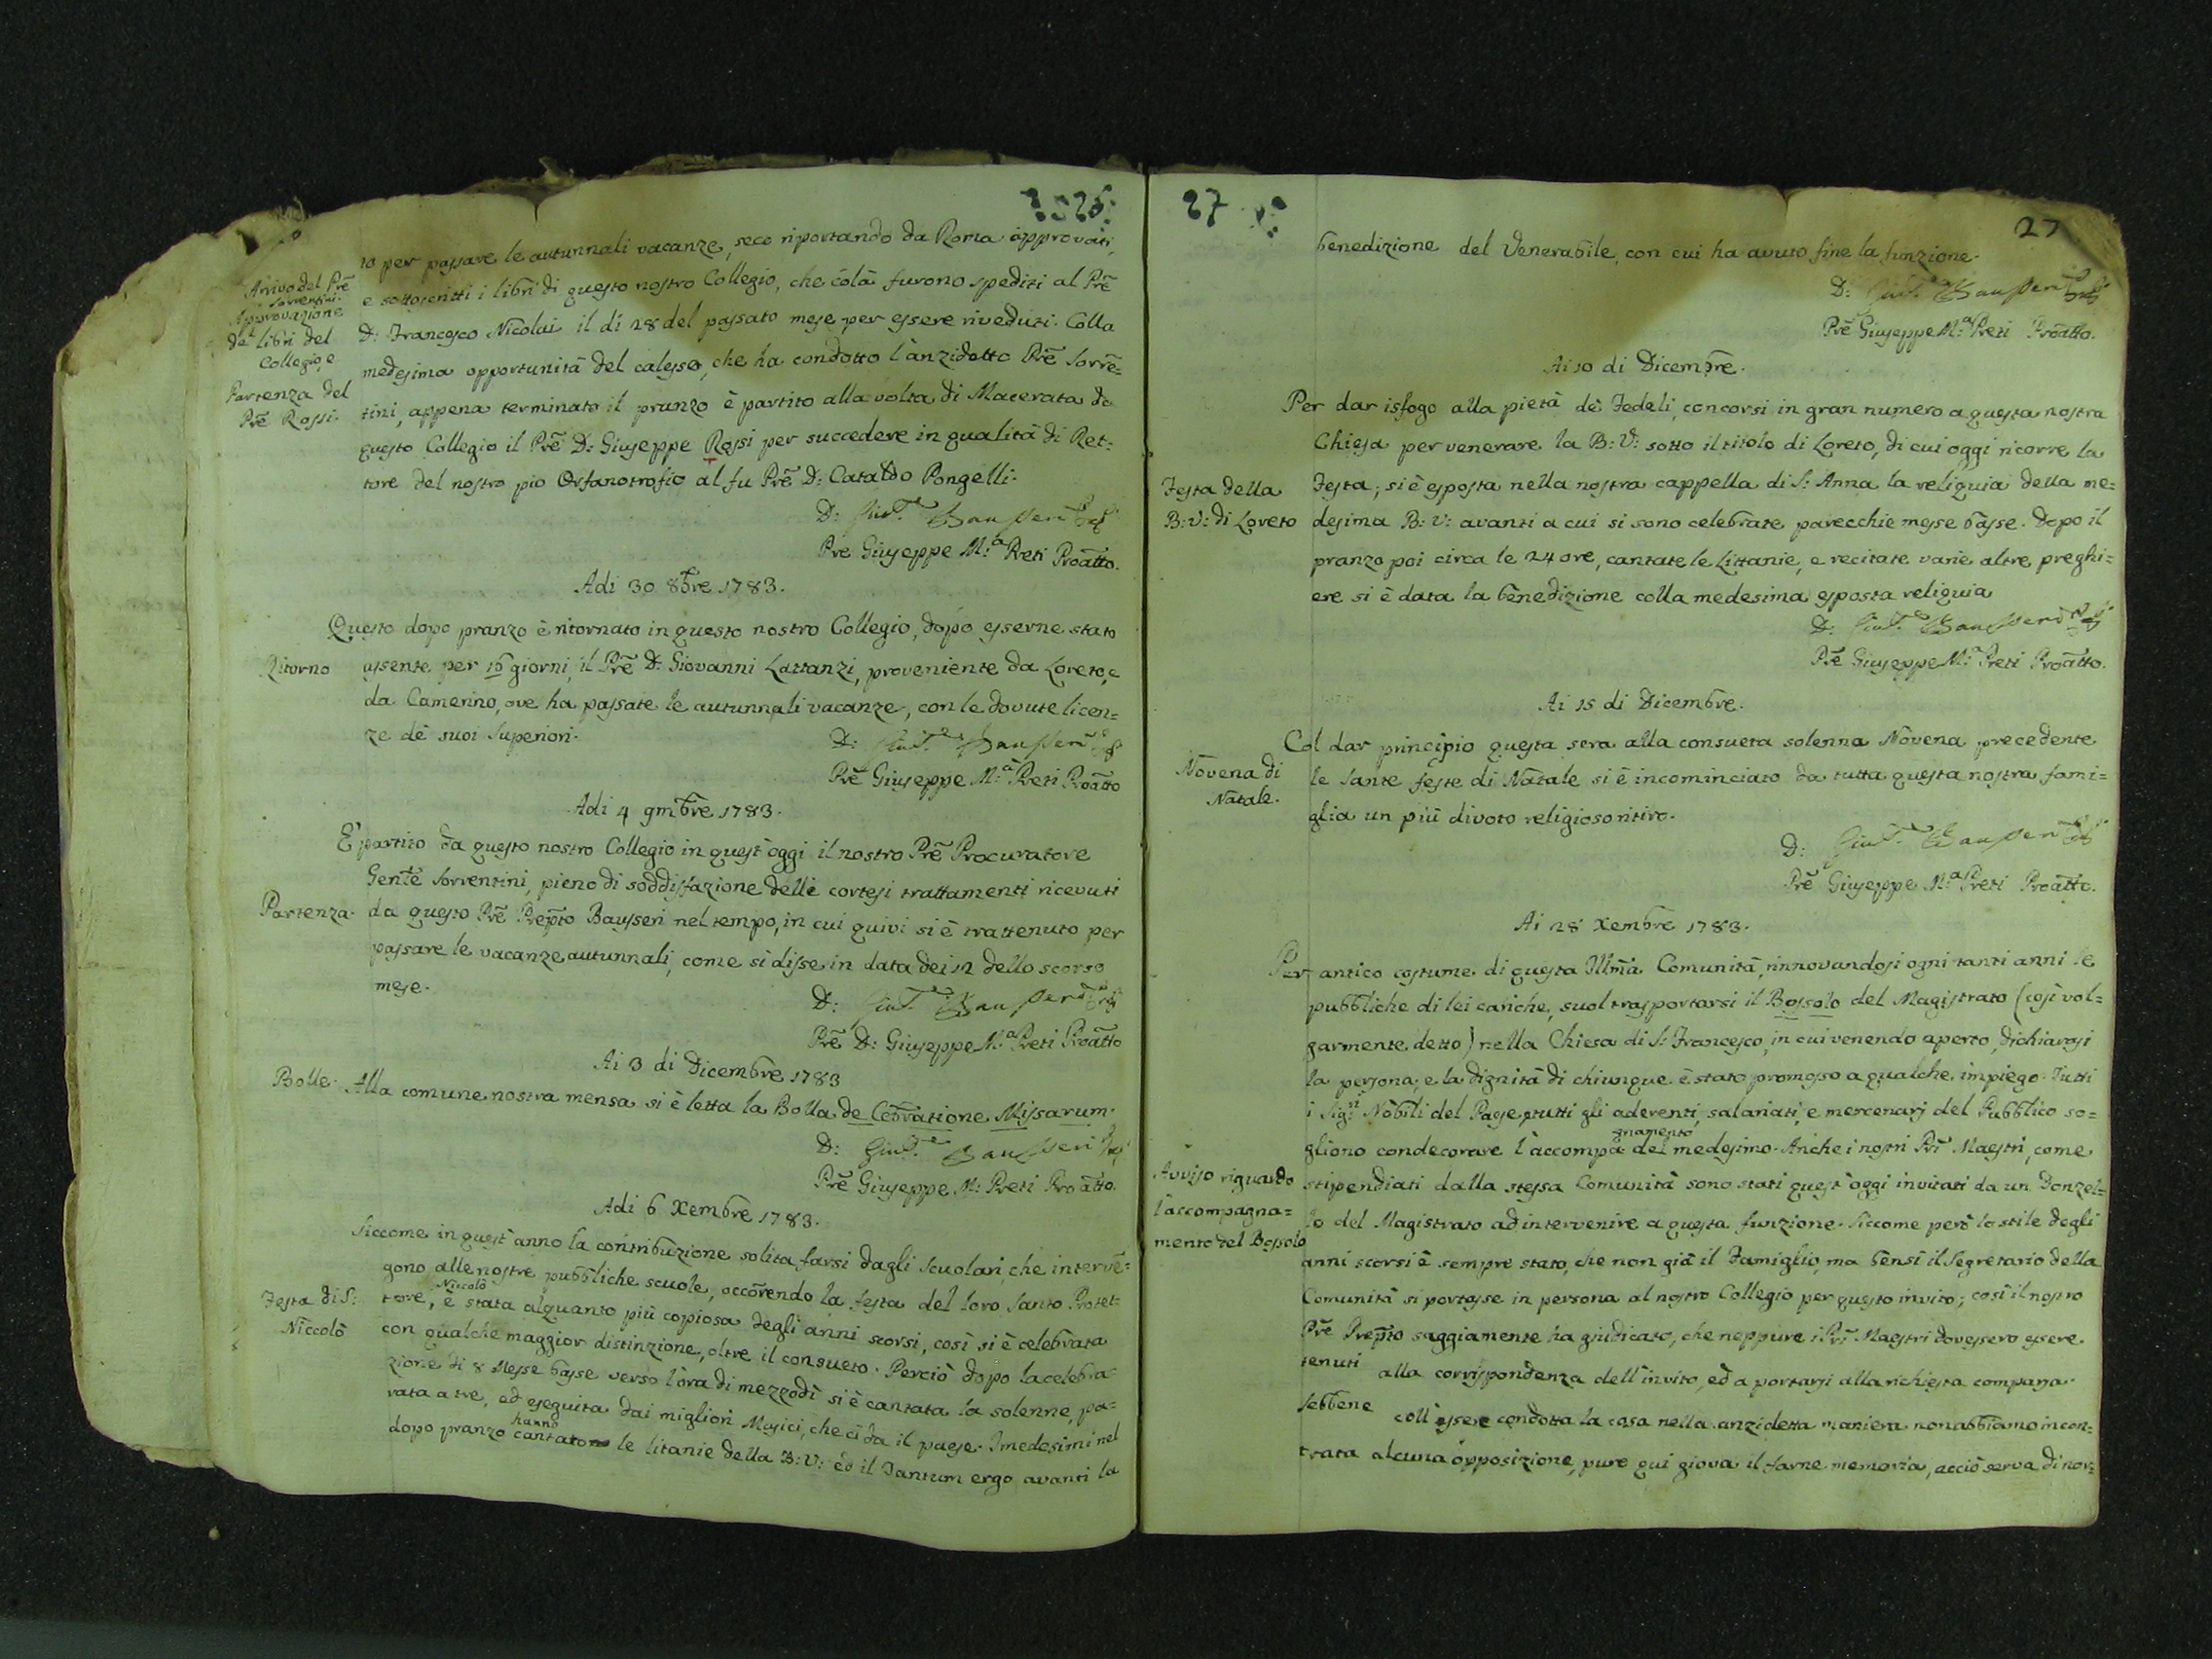 25
to per passare le autunnali vacanze, seco riportando da Roma approvati,
Arrivo del Prē
Sorrentini.
Approvazione
de' libri del
Collegio, e
Partenza del
Prē Rossi.
e sottoscritti i libri di questo nostro Collegio, che colà furono spediti al Prē
D: Francesco Nicolai il di 28 del passato mese per essere riveduti. Colla
medesima opportunità del calesse, che ha condotto l'anzidetto Prē Sorrē=
tini, appena terminato il pranzo è partito alla volta di Macerata da
questo Collegio il Prē D: Giuseppe Rossi per succedere in qualità di Ret:
tore del nostro pio Orfanotrofio al fu Prē D: Cataldo Pongelli.
D: Bausseri
Prē Giuseppe M:ª Preti Proātto.
Adi 30 8bre 1783.
Questo dopo pranzo è ritornato in questo nostro Collegio, dopo esserne stato
Ritorno
assente per 16 giorni, il Prē D: Giovanni Lattanzi, proveniente da Loreto, e
da Camerino, ove ha passate le autunnali vacanze, con le dovute licen=
ze de' suoi Superiori.
D: Bausseri
Prē Giuseppe M:ª Preti Proātto
Adi 4 9mbre 1783.
E' partito da questo nostro Collegio in quest'oggi il nostro Prē Procuratore
Genle Sorrentini, pieno di soddisfazione delli cortesi trattamenti ricevuti
Partenza.
da questo Prē Prepto Bausseri nel tempo, in cui quivi si è trattenuto per
passare le vacanze autunnali, come si disse in data dei 12 dello scorso
mese.
D: Bausseri
Prē D: Giuseppe M:ª Preti Proātto
Ai 3 di Dicembre 1783
Bolle.
Alla comune nostra mensa si è letta la Bolla de Cebratione Missarum.
D: Bausseri
Prē Giuseppe M: Preti Proātto.
Adi 6 Xembre 1783.
Siccome in quest'anno la contribuzione solita farsi dagli Scuolari, che intervē=
gono alle nostre pubbliche scuole, occorendo la festa del loro Santo Protet:
Festa di S:
Niccolò
tore, Niccolò è stata alquanto più copiosa degli anni scorsi, così si è celebrata
con qualche maggior distinzione, oltre il consueto. Perciò dopo la celebra=
zione di 8 Messe basse verso l'ora di mezzodì si è cantata la solenne, pa=
rata a tre, ed eseguita dai migliori Musici, che ci da il paese. I medesimi nel
dopo pranzo hanno cantato le litanie della B: V: ed il Tantum ergo avanti la
27
27
benedizione del Venerabile, con cui ha avuto fine la funzione.
D: Bausseri
Prē Giuseppe M:ª Preti Proātto.
Ai 10 di Dicembre.
Per dar isfogo alla pietà de' Fedeli, concorsi in gran numero a questa nostra
Chiesa per venerare la B: V: sotto il titolo di Loreto, di cui oggi ricorre la
Festa della
B: V: di Loreto
Festa; si è esposta nella nostra cappella di S: Anna la reliquia della me=
desima B: V: avanti a cui si sono celebrate parecchie messe basse. Dopo il
pranzo poi circa le 24 ore, cantate le Littanie, e recitate varie altre preghi=
ere si è data la benedizione colla medesima esposta reliquia
D: Bausseri
Prē Giuseppe M:ª Preti Proātto.
Ai 15 di Dicembre.
Col dar principio questa sera alla consueta solenne Novena precedente
Novena di
Natale.
le Sante feste di Natale si è incominciato da tutta questa nostra fami=
glia un più divoto religioso ritiro.
D: Bausseri
Prē Giuseppe M:ª Preti Proātto.
Ai 28 Xembre 1783.
Per antico costume di questa Illma Comunità, rinnovandosi ogni tanti anni le
pubbliche di lei cariche, suol trasportarsi il Bossolo del Magistrato (così vol=
garmente detto) nella Chiesa di S: Francesco, in cui venendo aperto, dichiarasi
la persona, e la dignità di chiunque è stato promosso a qualche impiego. Tutti
i Sigri Nobili del Paese, tutti gli aderenti, salariati, e mercenarj del Pubblico so=
gliono condecorare l'accompagnamento del medesimo. Anche i nostri Pri Maestri, come
Avviso riguardo
l'accompagna=
mento del Bossolo
stipendiati dalla stessa Comunità sono stati quest'oggi invitati da un Donzel=
lo del Magistrato ad intervenire a questa funzione. Siccome però lo stile degli
anni scorsi è sempre stato, che non già il Famiglio, ma bensì il Segretario della
Comunità si portasse in persona al nostro Collegio per questo invito; così il nostro
Prē Prepto saggiamente ha giudicato, che neppure i Pri Maestri dovessero essere
tenuti alla corrispondenza dell'invito, ed a portarsi alla richiesta comparsa.
Sebbene coll'essere condotta la cosa nella anzidetta maniera non abbiamo incon:
trata alcuna opposizione, pure qui giova il farne memoria, acciò serva di nor=